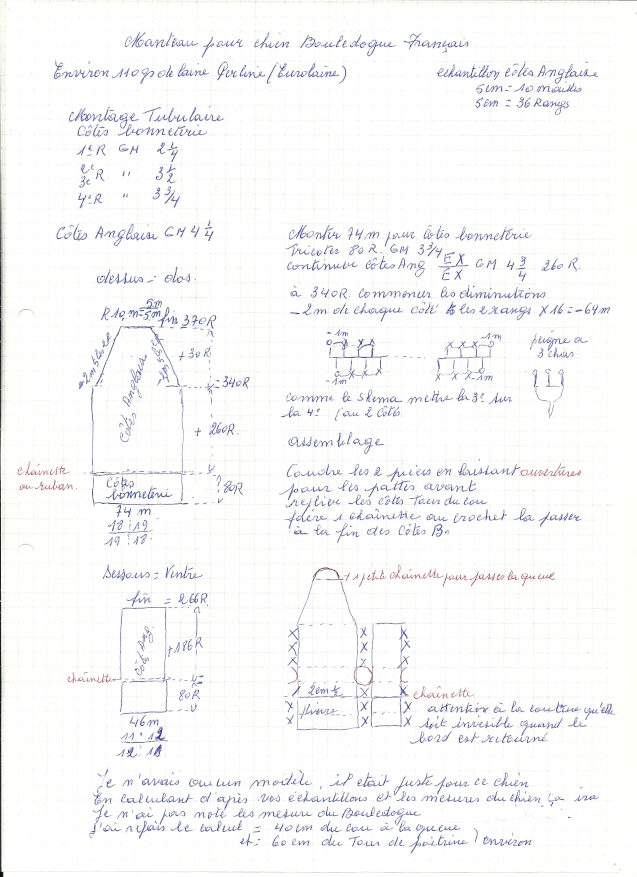 Manteau pour chien Bouledogue Français
Environ 110 grs de laine Perline (Eurolaine)
echantillon côtes Anglaise
5cm = 10 mailles
5cm = 36 Rangs
Montage Tubulaire
Côtes bonneterie
1e R GM 2 1/4
2e
3e R " 3 1/2
4e R " 3 3/4
Côtes Anglaise GM 4 1/4
Monter 74 m pour côtes bonneterie
Tricoter 80 R. GM 3 3/4
continuer côtes Ang EX/EX GM 4 3/4 260 R.
à 340R. commencer les diminutions
- 2m de chaque côté ts les 2 rangs x 16 = - 64m
dessus = dos
R 10 m = 5m/5m fin 370R
+ 30R
= 340R
Côtes Anglaise
+ 260R.
chaînette
ou ruban
Côtes
bonneterie
80R
74 m
18 : 19
19 : 18
-1m
-1m
-1m
-1m
peigne a
3 chas
comme le skema mettre la 3e sur
la 4e (au 2 côtés
assemblage
Coudre les 2 pièces en laissant ouvertures
pour les pattes avant
replier les côtes Tour du cou
faire 1 chaînette au crochet la passer
à la fin des Côtes B.
Dessous = Ventre
fin = 266R.
Côt. Ang.
+ 186R
chaînette
80R
46m
11 : 12
12 : 11
+ 1 petite chaînette pour passer la queue
2cm 1/2
chaînette
attention à la couture qu'elle
soit invisible quand le
bord est retourné
Je n'avais qu'un modèle, il était juste pour ce chien
En calculant d'après vos échantillons et les mesures du chien ça ira
Je n'ai pas noté les mesure du Bouledogue
J'ai refais le calcul = 40 cm du cou à la queue
et = 60 cm du Tour de poitrine) environ